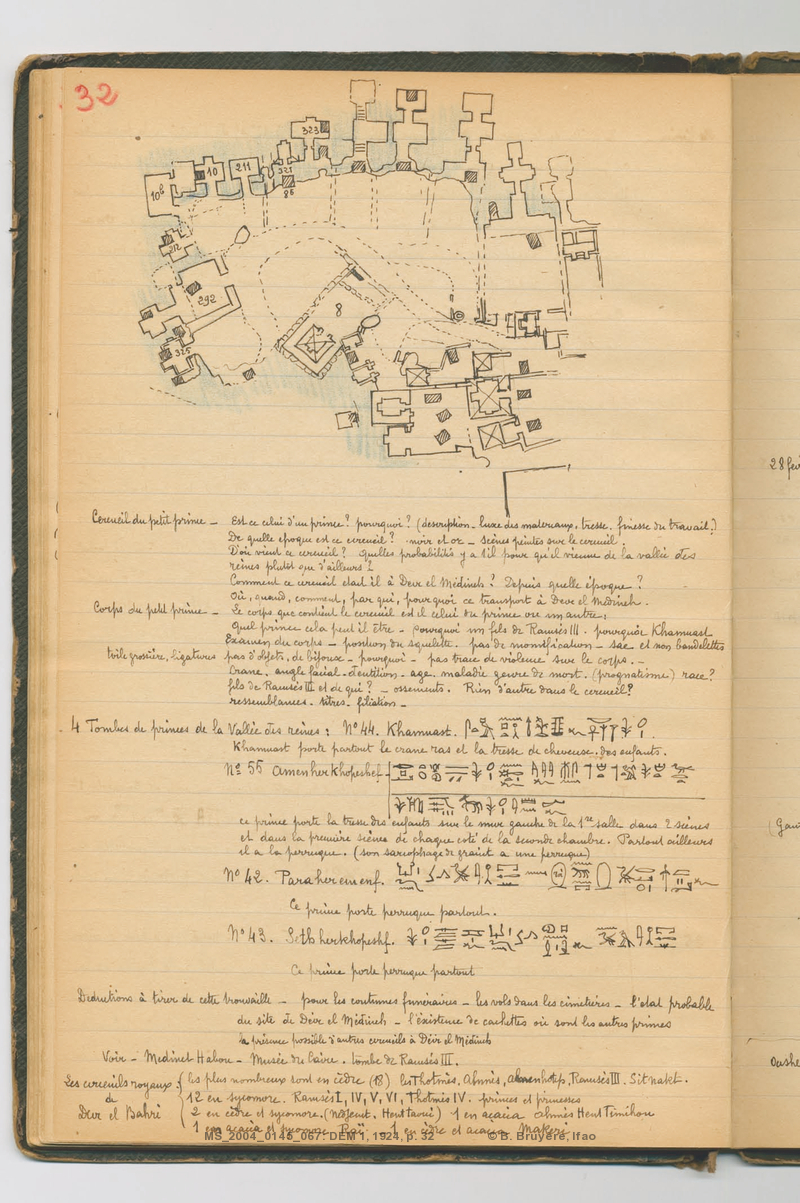 32
323
10
211
321
10b
86
212
292
8
325
28 fev
Cercueil du petit prince — Est ce celui d'un prince? pourquoi? (description - luxe des materiaux. tresse. finesse du travail?)
De quelle epoque est ce cercueil? noir et or — scènes peintes sur le cercueil.
D'où vient ce cercueil? Quelles probabilités y a t'il pour qu'il vienne de la vallée des
reines plutôt que d'ailleurs?
Comment ce cercueil était il à Deir el Médineh? Depuis quelle époque?
Où, quand, comment, par qui, pourquoi ce transport à Deir el Médineh.
Corps du petit prince — Le corps que contient le cercueil est il celui du prince ou un autre?
Quel prince cela peut il être — pourquoi un fils de Ramsès III. pourquoi Khamuast
Examen du corps — position du squelette. pas de momification — sac et non bandelettes
toile grossière, ligatures pas d'objets, de bijoux — pourquoi — pas trace de violence sur le corps. —
Crane, angle facial - dentition - age, maladie genre de mort. (prognatisme) race?
fils de Ramsès III et de qui? — ossements. Rien d'autre dans le cercueil?
ressemblances - titres - filiation —
4 Tombes de princes de la Vallée des reines: No 44. Khamuast.
Khamuast porte partout le crane ras et la tresse de cheveux des enfants.
No 55 Amenherkhopeshef
ce prince porte la tresse des enfants sur le mur gauche de la 1re salle dans 2 scènes
et dans la première scène de chaque coté de la seconde chambre. Partout ailleurs
il a la perruque. (son sarcophage de granit a une perruque)
No 42. Paraheremenf.
Ce prince porte perruque partout.
No 43. Seth herkhopeshf.
Ce prince porte perruque partout
(Gau
Déductions à tirer de cette trouvaille — pour les coutumes funéraires — les vols dans les cimetières — l'état probable
du site de Déir el Médineh — l'éxistence de cachettes où sont les autres princes
la présence possible d'autres cercueils à Déir el Médineh
Voir — Medinet Habou — Musée du Caire. tombe de Ramsès III.
Oushe
Les cercueils royaux de Deir el Bahri
les plus nombreux sont en cèdre (18) les Thotmès, Ahmès, Amenhotep, Ramsès III. Sitnakt.
12 en sycomore. Ramsès I, IV, V, VI, Thotmès IV. princes et princesses
2 en cèdre et sycomore. (Hent Taoui) 1 en acacia Ahmès Hent Timihou
1 en acacia et sycomore Raï — 1 en cèdre et acacia Makeri
MS_2004_0145_067: DEM 1, 1924, p. 32
© B. Bruyère, Ifao